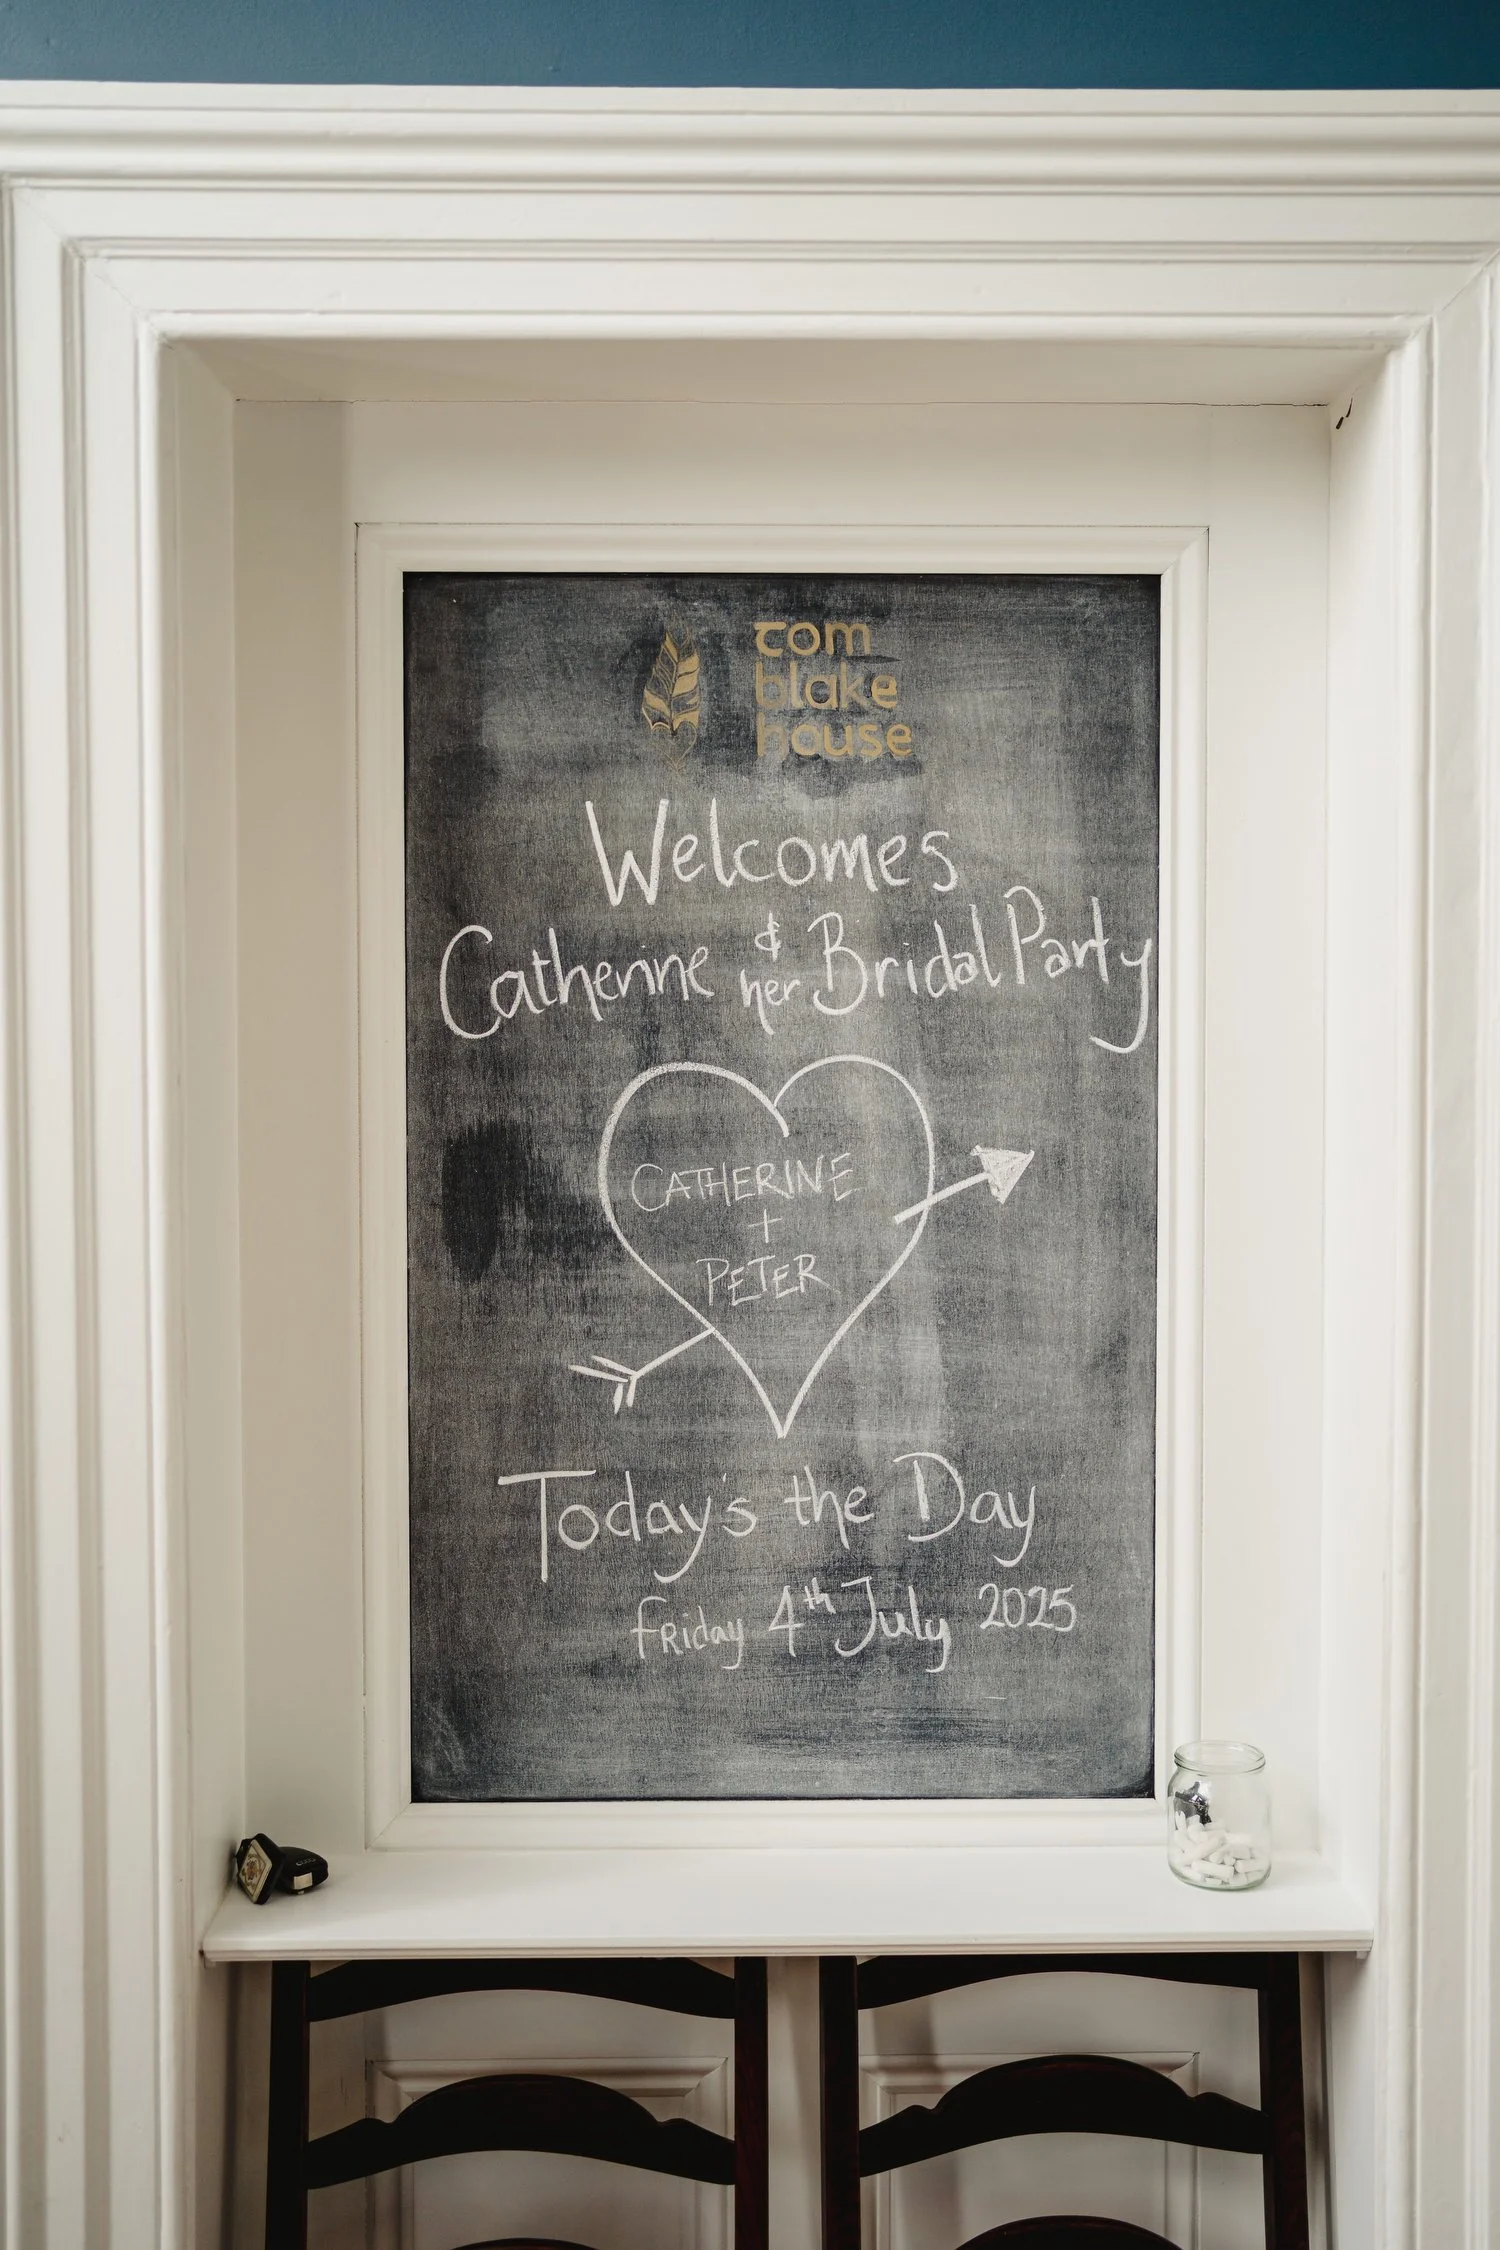 tom
blake
house
Welcomes
Catherine & her Bridal Party
CATHERINE
+
PETER
Today's the Day
Friday 4th July 2025